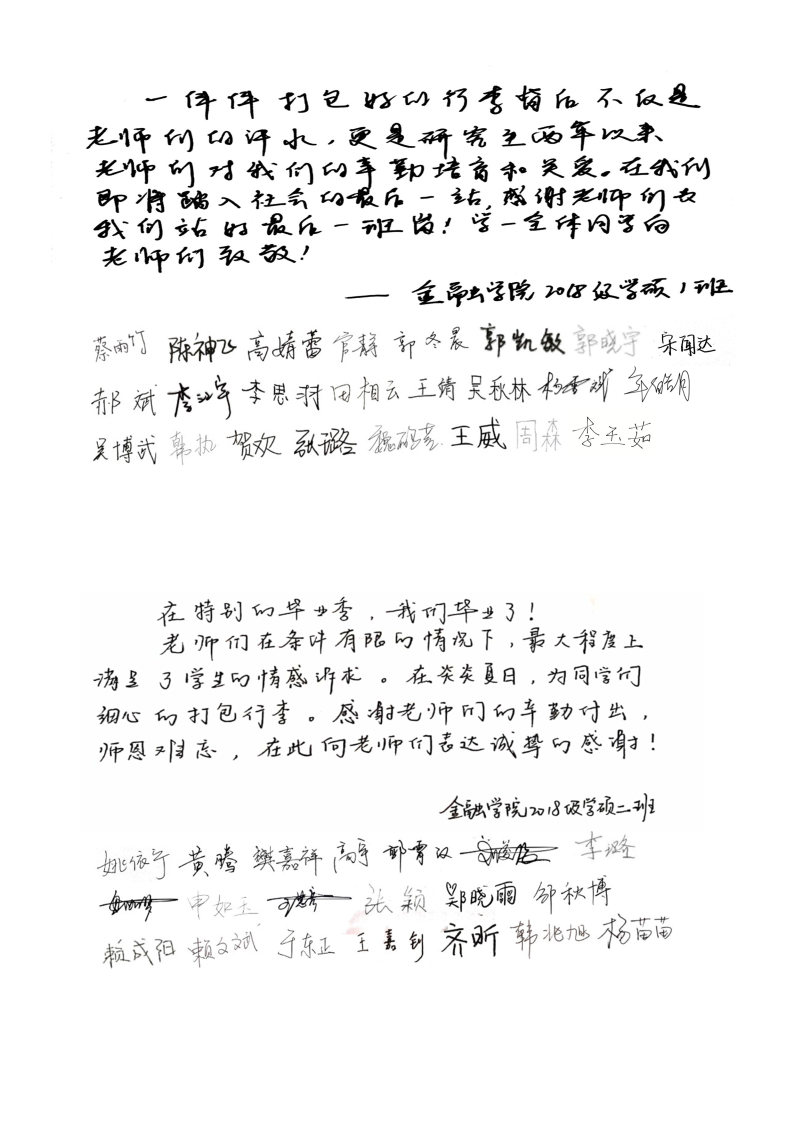 一件件打包好的行李背后不仅是
老师们的汗水，更是研究生两年以来
老师们对我们的辛勤培育和关爱。在我们
即将踏入社会的最后一站，感谢老师们为
我们站好最后一班岗！学一全体同学向
老师们致敬！
——金融学院2018级学硕1班
蔡雨竹 陈神飞 高婧蕾 官静 郭冬晨 郭凯敏 郭晓宇 宋闻达
郝斌 廖江宇 李思羽 田相云 王绮 吴秋林 杨雪斌 年皓月
吴博武 韩执 贺欢 张璐 王威 周森 李玉茹
在特别的毕业季，我们毕业了！
老师们在条件有限的情况下，最大程度上
满足了学生的情感诉求。在炎炎夏日，为同学们
细心的打包行李。感谢老师们的辛勤付出，
师恩难忘，在此向老师们表达诚挚的感谢！
金融学院2018级学硕二班
姚依宁 黄腾 樊嘉祥 高宇 李璐
申如玉 张颖 郑晓雨 邹秋博
赖成阳 赖文斌 于东正 王嘉钊 齐昕 韩兆旭 杨苗苗